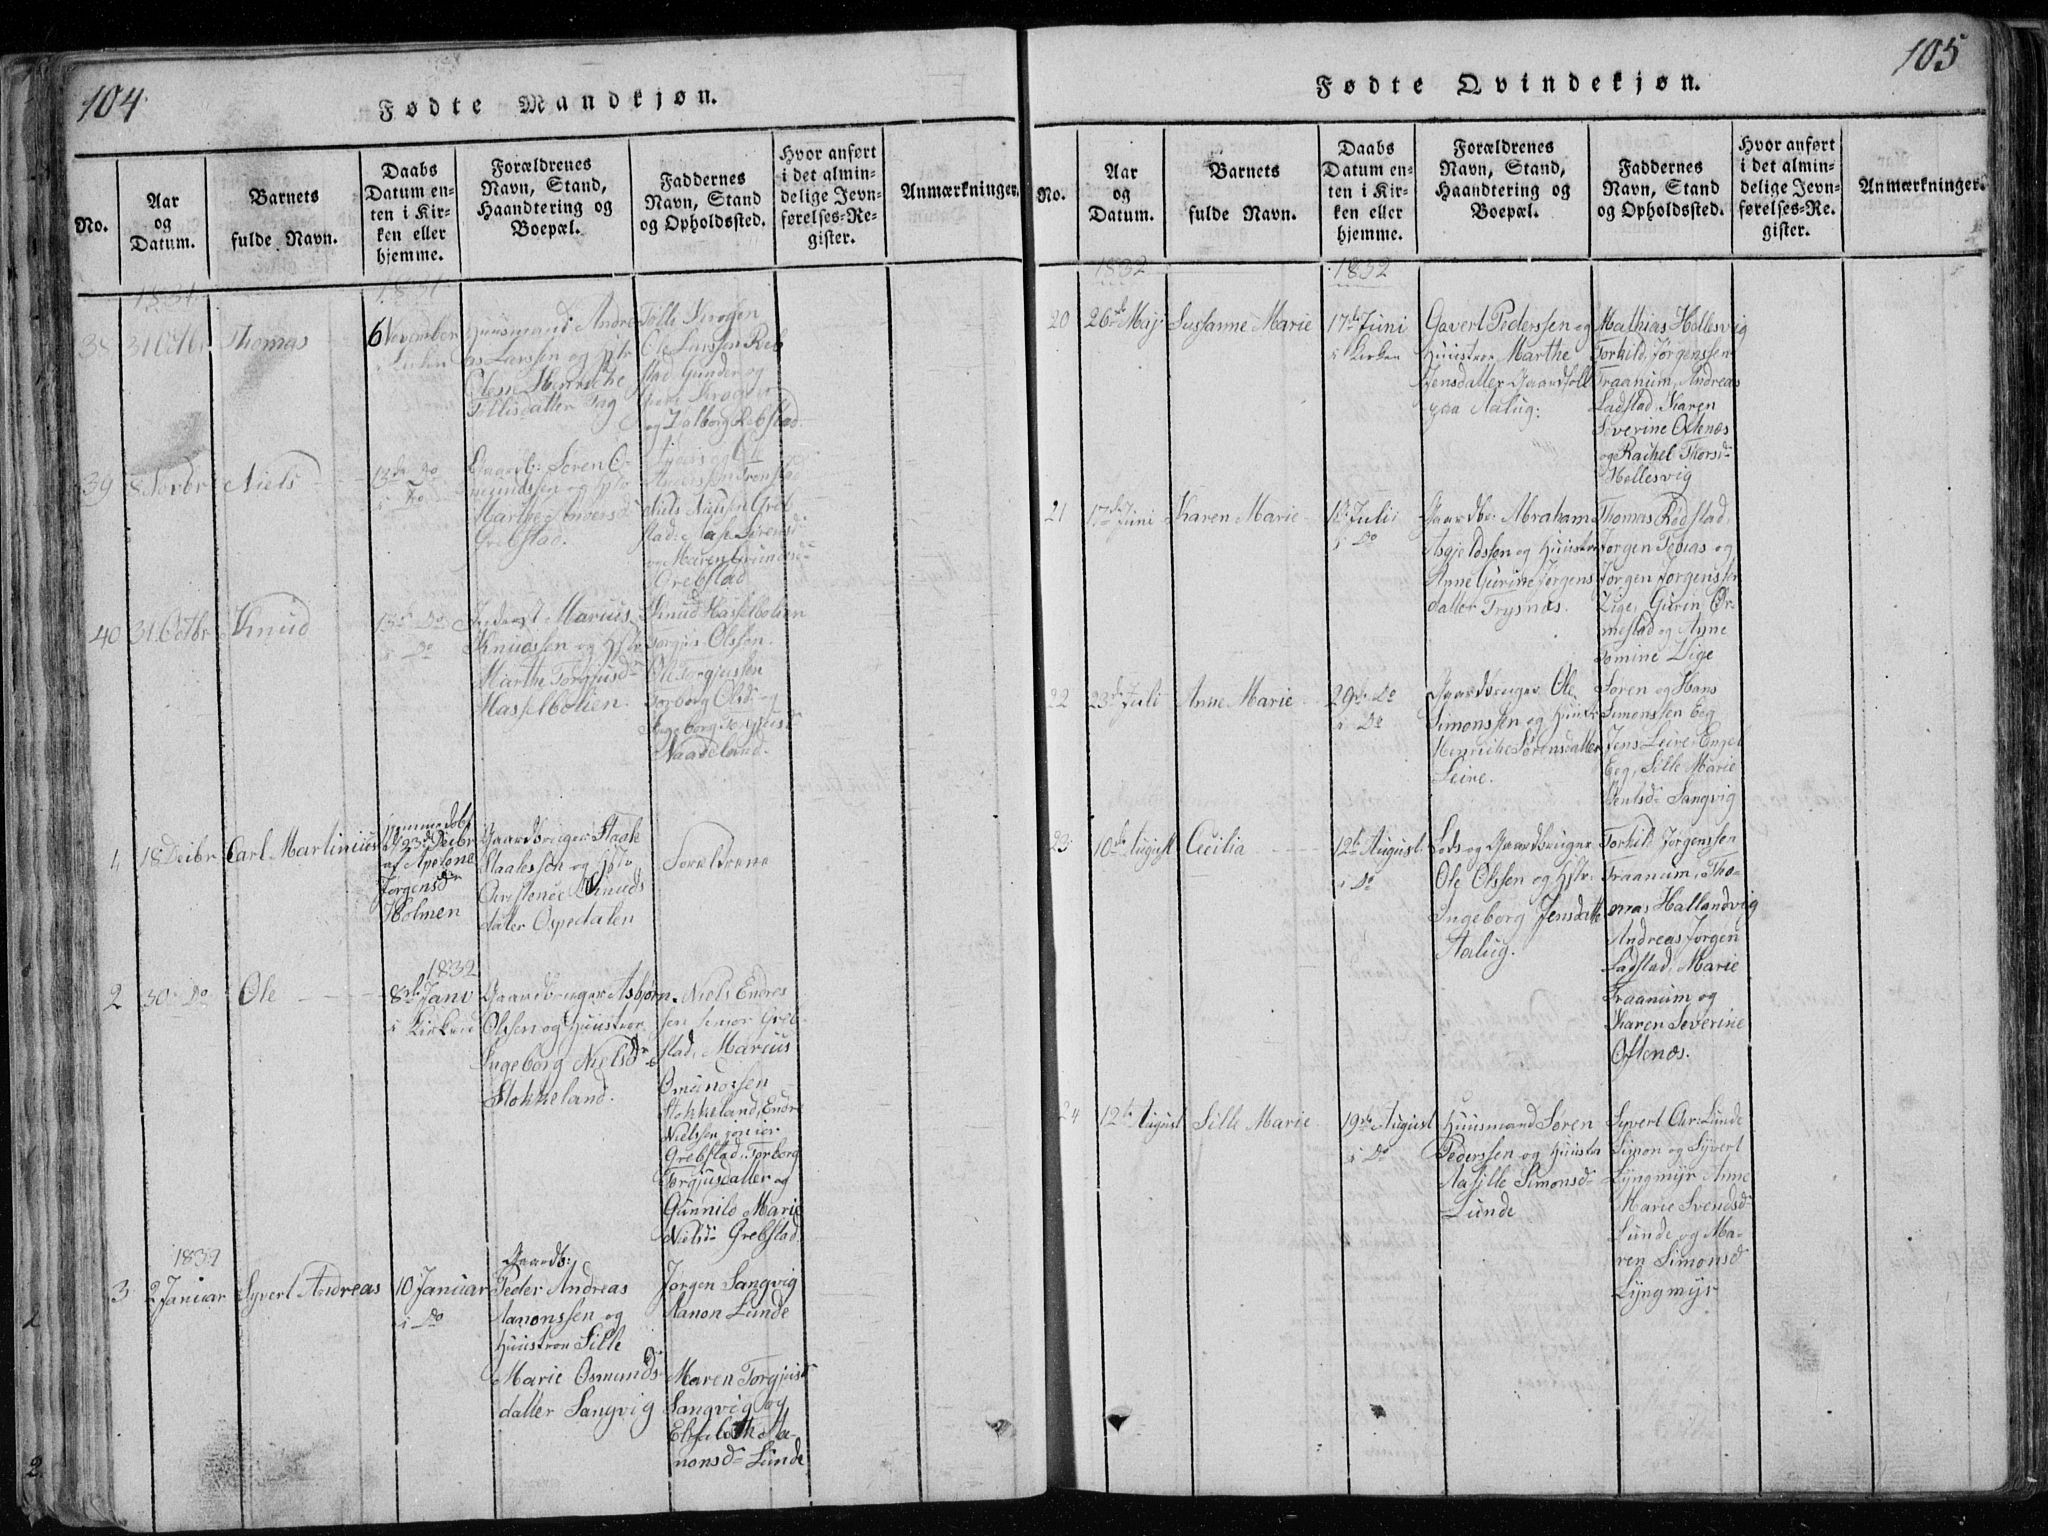 104
Fødte Mandkjøn.
No.
Aar
og
Datum.
Barnets
fulde Navn.
Daabs
Datum en-
ten i Kir-
ken eller
hjemme.
Forældrenes
Navn, Stand,
Haandtering og
Boepæl.
Faddernes
Navn, Stand
og Opholdssted.
Hvor anført
i det almin-
delige Jevn-
førelses-Re-
gister.
Anmærkninger.
1831
1831
38
31 Octbr
Thomas
6 November
i Kirken
Huusmand Andre
as Larssen og Hstr
Olene Henriche
Tellisdatter Tag
Tölle Krogen
Ole Larssen Reb
stad Gunder og
Krogen
og Valborg Rebstad
39
8 Novbr
Niels
13de Do
i Do
Gaardb: Søren O-
smundssen og Hstr
Marthe Anversd
Grebstad.
Anverssen Fronstad
Niels Nilssen Greb
stad, Aase Sörensd:
og Maren Gundersd
Grebstad
40
31 Octbr
Knud
13de Do
i Do
Inderst Marius
Knudssen og Hstr
Marthe Torgjusd
Hasselbolien.
Knud Hasselbolien
Torgjus Olssen
Ole Torgjussen
Torborg Olsd og
Ingeborg Torgjusd
Naadeland.
1
18 Decbr
Carl Martinius
hjemmedöbt
d 23de Decbr
af Apelone
Jörgensd
Holmen
Gaardbruger Staale
Staalessen og Hstr
Christence Knuds
datter Ospedalen
Foreldrene
1832
2
30 Do
Ole
8de Janv
i Kirken
Gaardbruger Asbjørn
Olssen og Huustroe
Ingeborg Nielsdr
Stokkeland.
Niels Endres
sen senior Greb-
stad, Marcus
Omundssen
Stokkeland, Endre
Nielssen jonior
Grebstad, Torborg
Torgjusdatter og
Gunnild Marie
Nielsd Grebstad
1832
3
2 Januar
Syvert Andreas
10 Januar
i Do
Gaardb:
Peder Andreas
Aanonssen og
Huustroe Sille
Marie Osmunds
datter Sangvig
Jørgen Sangvig
Aanon Lunde
Maren Torgjusd
Sangvig og
Elisabeth Aa-
nonsd Lunde
105
Fødte Qvindekjøn.
No.
Aar
og
Datum.
Barnets
fulde Navn.
Daabs
Datum en-
ten i Kir-
ken eller
hjemme.
Forældrenes
Navn, Stand,
Haandtering og
Boepæl.
Faddernes
Navn, Stand
og Opholdssted.
Hvor anført
i det almin-
delige Jevn-
førelses-Re.
gister.
Anmærkninger.
1832
1832
20
26de Maj
Susanne Marie
17de Juni
i Kirken
Gavert Pederssen og
Huustroe Marthe
Jensdatter Gaardfolk
paa Aalug:
Mathias Hellesvig
Torkild Jørgenssen
Traanum, Andreas
Ladstad, Karen
Severine Oftenæs
og Rachel Thorsd
Hellesvig
21
17de Juni
Karen Marie
1ste Juli
i Do
Gaardbr. Abraham
Asgjeldssen og Huustr
Anne Gurine Jørgens
datter Trysnæs.
Thomas Rödstad,
Jørgen Tobias og
Jørgen Jørgenssen
Lige, Gurin Ør-
mestad og Anne
Tomine Lige
22
23de Juli
Anne Marie
29de Do
i Do
Gaardbruger Ole
Simonssen og Huustr
Henriche Sørensdatter
Leire.
Søren og Hans
Simonssen Eeg
Jens Leire, Engel
Eeg, Sille Marie
Bentsd Sangvig
23
10de August
Cecilia
12te August
i Do
Lods og Gaardbruger
Ole Olssen og Hstr.
Ingeborg Jensdatt
Aalug.
Torkild Jørgenssen
Traanum, Tho-
mas Hallandvig
Andreas Jørgen
Ladstad, Marie
Traanum og
Karen Severine
Oftenæs.
24
12te August
Sille Marie
19de August
i Do
Huusmand Søren
Pederssen og Huustr
Aasille Simonsd
Lunde
Syvert Chr: Lunde
Simon og Syvert
Lyngmyr Anne
Marie Svendsd
Lunde og Ma-
ren Simonsd
Lyngmyr